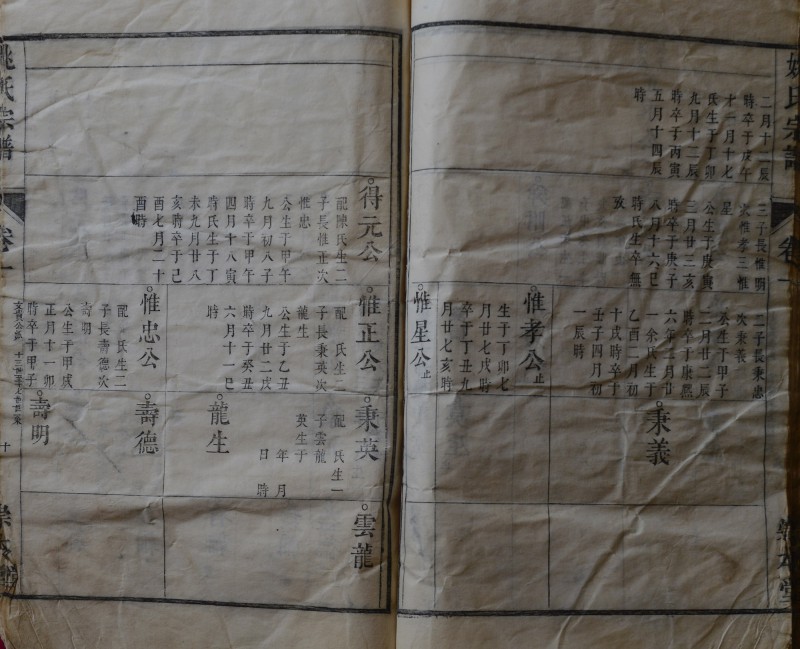 姚氏宗譜
卷一
二月十一辰
時卒于戊午
十一月十七
氏生于丁卯
九月十二辰
時卒于丙寅
五月十四辰
時
三子長惟明
次惟孝三惟
星
公生于庚寅
三月廿三亥
時卒于庚子
八月十六巳
時氏生卒無
攷
二子長秉忠
次秉義
癸生于甲子
二月廿二辰
時卒于庚熙
六年三月廿
一余氏生于
乙酉二月初
十戌時卒于
壬子四月初
一辰時
秉義
惟孝公止
生于丁卯七
月廿七戌時
卒于丁丑九
月廿七亥時
惟星公止
得元公
配陳氏生二
子長惟正次
惟忠
公生于甲午
九月初八子
時卒于甲午
四月十八寅
時氏生于丁
未九月廿八
亥時卒于己
酉七月二十
酉時
惟正公
配 氏生二
子長秉英次
龍生
公生于乙丑
九月廿二戌
時卒于癸丑
六月十一巳
時
秉英
配 氏生一
子雲龍
英生于
年 月
日 時
雲龍
龍生
惟忠公
配 氏生二
子長壽德次
壽明
公生于甲戌
正月十一卯
時卒于甲子
壽德
壽明
姚氏宗譜
卷一
十